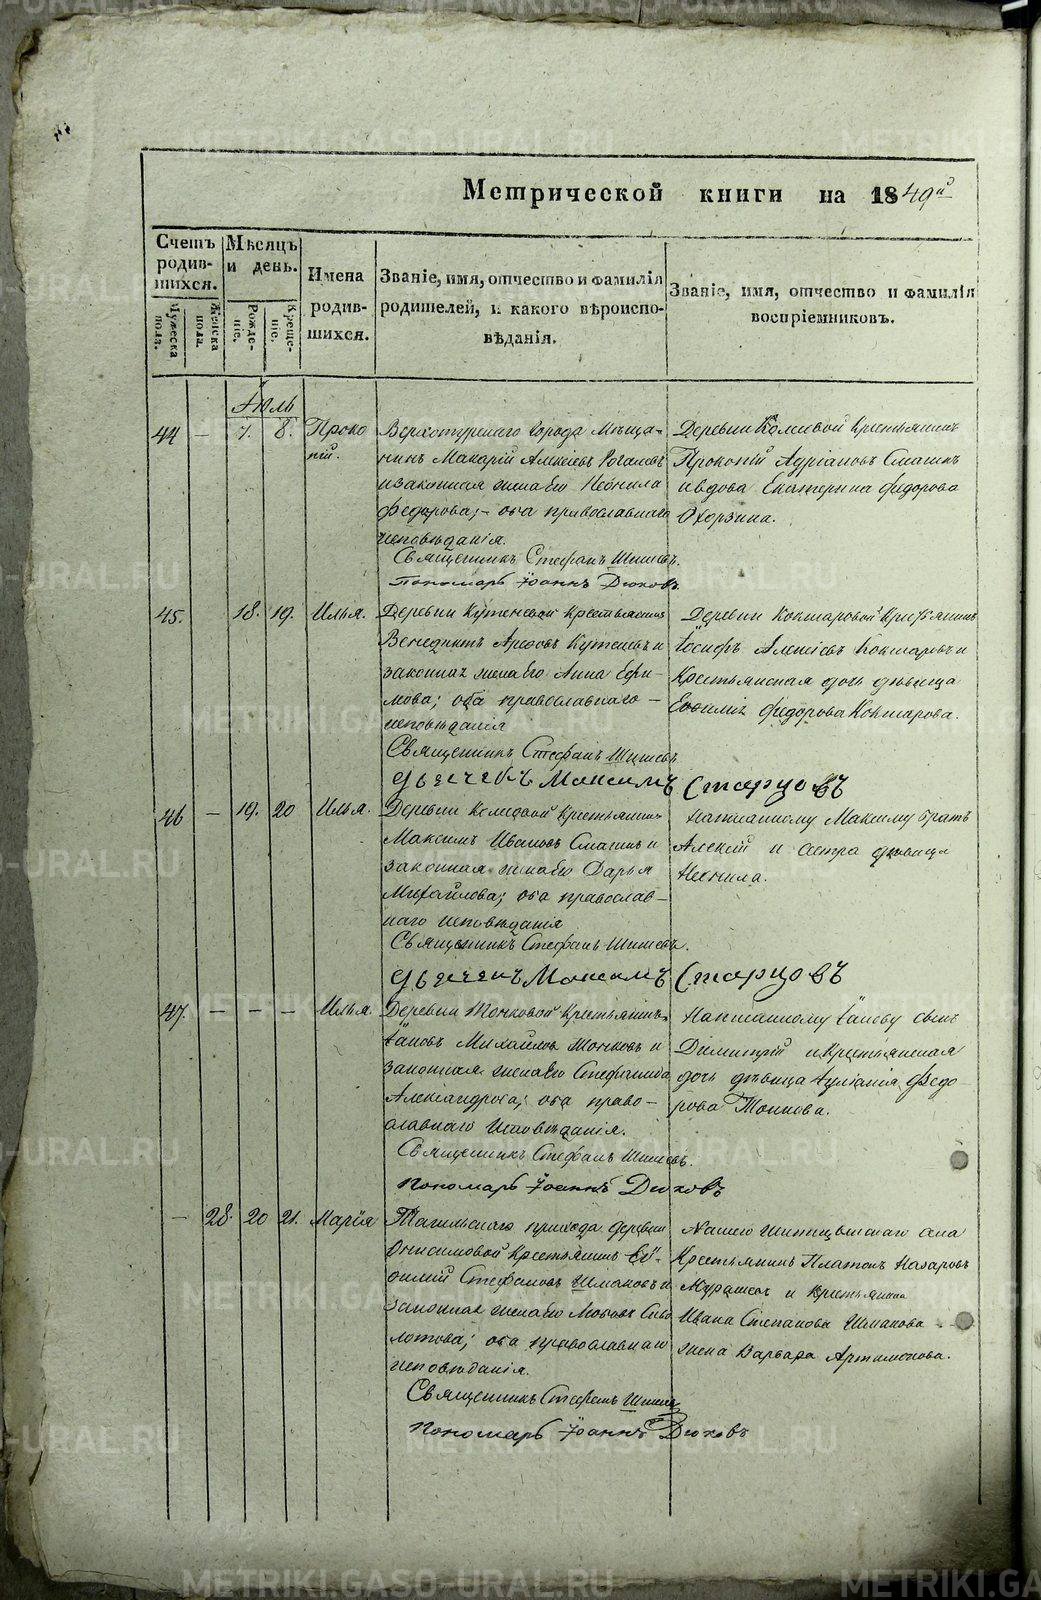 Метрической книги на 1849й
Счетъ родив-шихся.
Мужеска пола.
Женска пола.
Мѣсяцъ и день.
Рожде-ніе.
Креще-ніе.
Имена родив-шихся.
Званіе, имя, отчество и фамилія
родителей, и какого вѣроиспо-
вѣданія.
Званіе, имя, отчество и фамилія
воспріемниковъ.
Іюль
44 — 7. 8. Проко
пій.
Верхотурскаго города Мѣща-
нинъ Макарій Алексѣевъ
и законная жена его Неонила
Федорова; — оба православнаго
исповѣданія.
Священникъ Стефанъ Шишевъ.
Пономарь Іоаннъ Дюковъ.
Деревни Крестьянинъ
Прокопій Адріановъ Смагинъ
и вдова Екатерина Федорова
Охорзина.
45. 18. 19. Илья.
Деревни Кутеневой Крестьянинъ
Венедиктъ Кутеневъ и
законная жена его Анна Ефи-
мова; оба православнаго —
исповѣданія
Священникъ Стефанъ Шишевъ
Дьячекъ Максимъ Старцовъ
Деревни Кокшаровой Крестьянинъ
Іосифъ Алексѣевъ Кокшаровъ и
Крестьянская дочь дѣвица
Евфимія Федорова Кокшарова.
46 — 19. 20 Илья.
Деревни Крестьянинъ
Максимъ Ивановъ Смагинъ и
законная жена его Дарья
Михайлова; оба православ-
наго исповѣданія
Священникъ Стефанъ Шишевъ.
Дьячекъ Максимъ Старцовъ
Написанному Максиму братъ
Алексѣй и сестра дѣвица
Неонила.
47. — — — Илья.
Деревни Тонковой Крестьянинъ
Іаковъ Михайловъ Тонковъ и
законная жена его Стефанида
Александрова; оба право-
славнаго исповѣданія.
Священникъ Стефанъ Шишевъ.
Пономарь Іоаннъ Дюковъ
Написанному Іакову сынъ
Димитрій и Крестьянская
дочь дѣвица Іуліанія Федо-
рова Тонкова.
— 28. 20 21. Марія
Тагильскаго прихода деревни
Онисимовой Крестьянинъ Ев-
фимій Стефановъ Шмаковъ и
законная жена его Любовь
оба православнаго
исповѣданія.
Священникъ Стефанъ Шишевъ
Пономарь Іоаннъ Дюковъ
Нашего Шипицынскаго села
Крестьянинъ Платонъ Назаровъ
и Крестьянина
Ивана Степанова Шмакова
жена Варвара Артамонова.
METRIKI.GASO-URAL.RU